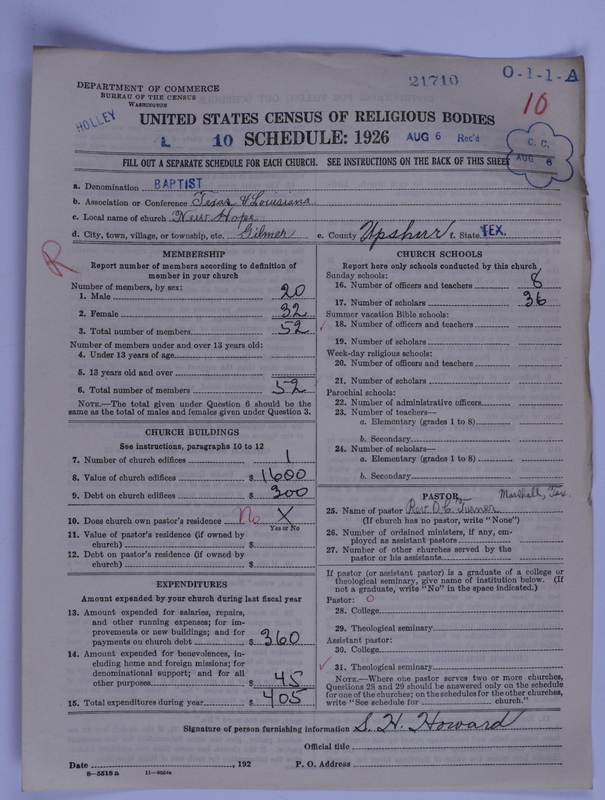 21710
O-1-1-A
DEPARTMENT OF COMMERCE
BUREAU OF THE CENSUS
WASHINGTON
10
HOLLEY
UNITED STATES CENSUS OF RELIGIOUS BODIES
L 10 SCHEDULE: 1926 AUG 6 Rec'd
C. C.
AUG 6
FILL OUT A SEPARATE SCHEDULE FOR EACH CHURCH. SEE INSTRUCTIONS ON THE BACK OF THIS SHEET
a. Denomination BAPTIST
b. Association or Conference Texas & Louisiana
c. Local name of church New Hope
d. City, town, village, or township, etc. Gilmer e. County Upshur f. State TEX.
R
MEMBERSHIP
Report number of members according to definition of
member in your church
Number of members, by sex:
1. Male 20
2. Female 32
3. Total number of members 52
Number of members under and over 13 years old:
4. Under 13 years of age
5. 13 years old and over
6. Total number of members 52
NOTE.—The total given under Question 6 should be the
same as the total of males and females given under Question 3.
CHURCH BUILDINGS
See instructions, paragraphs 10 to 12
7. Number of church edifices 1
8. Value of church edifices $ 1600
9. Debt on church edifices $ 300
10. Does church own pastor's residence No X
Yes or No
11. Value of pastor's residence (if owned by
church) $
12. Debt on pastor's residence (if owned by
church) $
EXPENDITURES
Amount expended by your church during last fiscal year
13. Amount expended for salaries, repairs,
and other running expenses; for im-
provements or new buildings; and for
payments on church debt $ 360
14. Amount expended for benevolences, in-
cluding home and foreign missions; for
denominational support; and for all
other purposes $ 45
15. Total expenditures during year $ 405
CHURCH SCHOOLS
Report here only schools conducted by this church
Sunday schools:
16. Number of officers and teachers 8
17. Number of scholars 36
Summer vacation Bible schools:
18. Number of officers and teachers
19. Number of scholars
Week-day religious schools:
20. Number of officers and teachers
21. Number of scholars
Parochial schools:
22. Number of administrative officers
23. Number of teachers—
a. Elementary (grades 1 to 8)
b. Secondary
24. Number of scholars—
a. Elementary (grades 1 to 8)
b. Secondary
PASTOR Marshall, Tex.
25. Name of pastor Rev. O. C. Turner
(If church has no pastor, write "None")
26. Number of ordained ministers, if any, em-
ployed as assistant pastors
27. Number of other churches served by the
pastor or his assistants
If pastor (or assistant pastor) is a graduate of a college or
theological seminary, give name of institution below. (If
not a graduate, write "No" in the space indicated.)
Pastor: 0
28. College
29. Theological seminary
Assistant pastor:
30. College
31. Theological seminary
NOTE.—Where one pastor serves two or more churches,
Questions 28 and 29 should be answered only on the schedule
for one of the churches; on the schedules for the other churches,
write "See schedule for church."
Signature of person furnishing information S. H. Howard
Official title
Date , 192 P. O. Address
8—5518 a 11—9034a